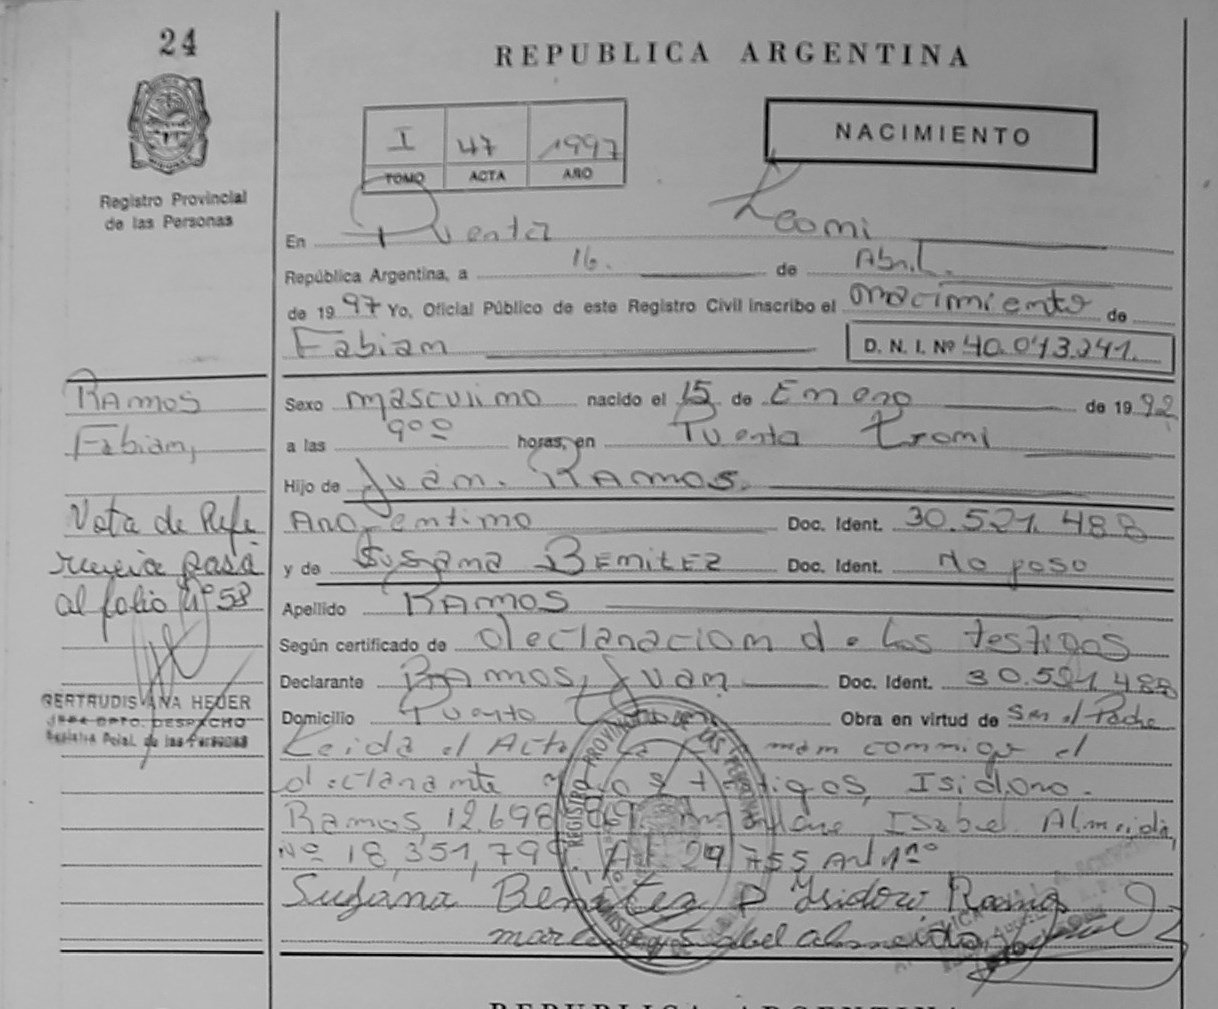 24
REPUBLICA ARGENTINA
NACIMIENTO
I 47 1997
TOMO ACTA AÑO
Registro Provincial
de las Personas
En Puenta
República Argentina, a 16. de Abril.
de 1997 Yo, Oficial Público de este Registro Civil inscribo el nacimiento de
Fabian D. N. I. Nº 40.043.241.
Sexo masculino nacido el 15 de Enero de 1992
a las 9 00 horas, en Puenta
Hijo de Juan. RAMOS.
Argentino Doc. Ident. 30.521.488
y de Susana BENITEZ Doc. Ident. No poso
Apellido RAMOS
Según certificado de declaracion de los testigos
Declarante RAMOS, Juan Doc. Ident. 30.521.488
Domicilio Puento Obra en virtud de Ser el Padre
Leida el Acta la man conmigo el
declarante testigos, Isidoro.
Ramos, 12.698 Isabel Almeida,
Nº 18,351,799. 29 755 Art 1º
Susana Benitez Isidoro Ramos
Isabel almeida
RAMOS
Fabian,
Nota de Refe
rencia pasa
al folio Nº 58
GERTRUDIS ANA HEDER
JEFE DPTO. DESPACHO
Registro Pcial. de las Personas
REGISTRO PROVINCIAL DE LAS PERSONAS
REPUBLICA ARGENTINA